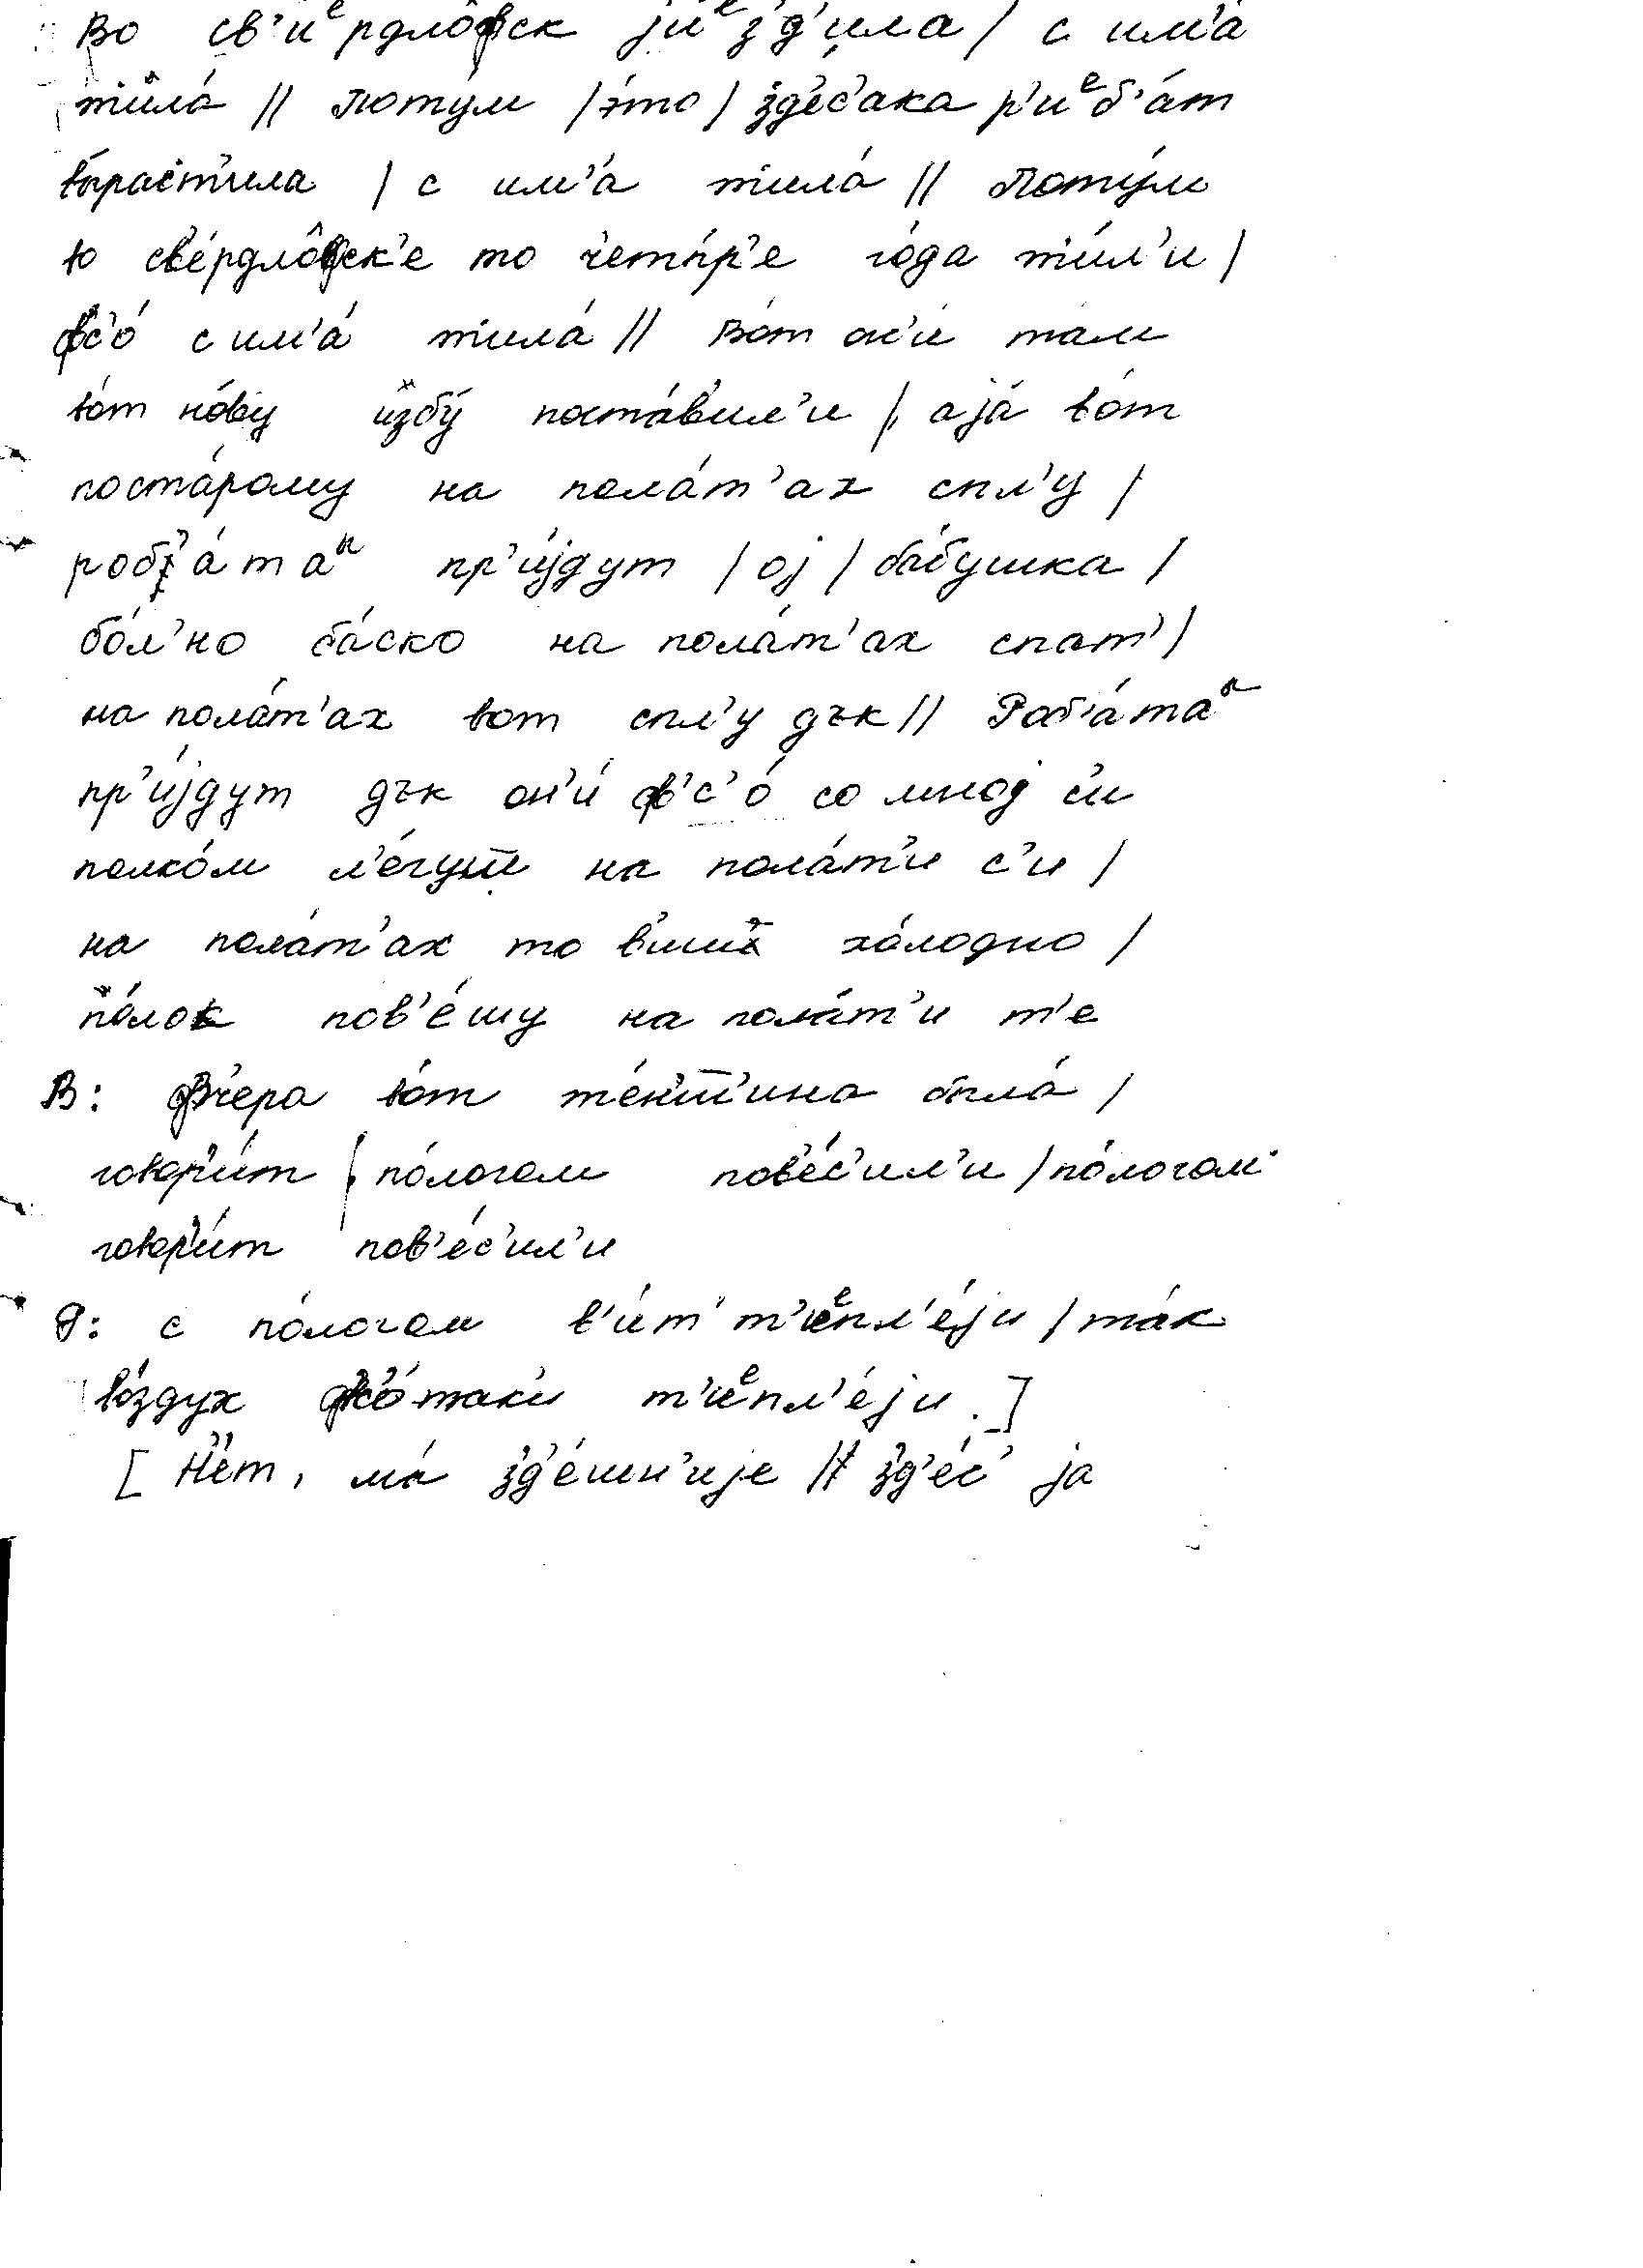 Во св'иᵉрдло̂фск jиᵉз'д'ила / с им'а́
жыла́ // Пoту́м / э́то / з'д'е́с'ака р'иᵉб'а́т
вы́рас'т'ила / с им'а́ жыла́ // Пoту́м
во св'е́рдло̂фск'е то четы́р'е го́да жы́л'и /
фс'о́ с им'а́ жыла́ // Во́т он'и́ там
во́т но́ву избу́ поста́в'ил'и / а jа́ во́т
поста́рому на пола́т'ах спл'у /
роб'а́таᵃ пр'и́jдут / оj / ба́бушка /
бо́л'но ба́ско на пола́т'ах спат' /
на пола́т'ах вот спл'у дък // Роб'а́таᵃ
пр'и́jдут дък он'и́ ф'с'о́ со мноj с'и
полко́м л'е́гут на пола́т'и с'и /
на пола́т'ах то хо́лодно /
по́лок пов'е́шу на пола́т'и т'е
В: Фчера во́т же́нш'ш'ина была́ /
говор'и́т / по́логом пов'е́с'ил'и / по́логом
говор'и́т пов'е́с'ил'и
Я: с по́логом в'и́т' т'иᵉпл'е́jи / та́к
во́здух фс'о́-так'и т'иᵉпл'е́jи.]
[ Н'е́т, мы́ з'д'е́шн'иjе // з'д'е́с' jа